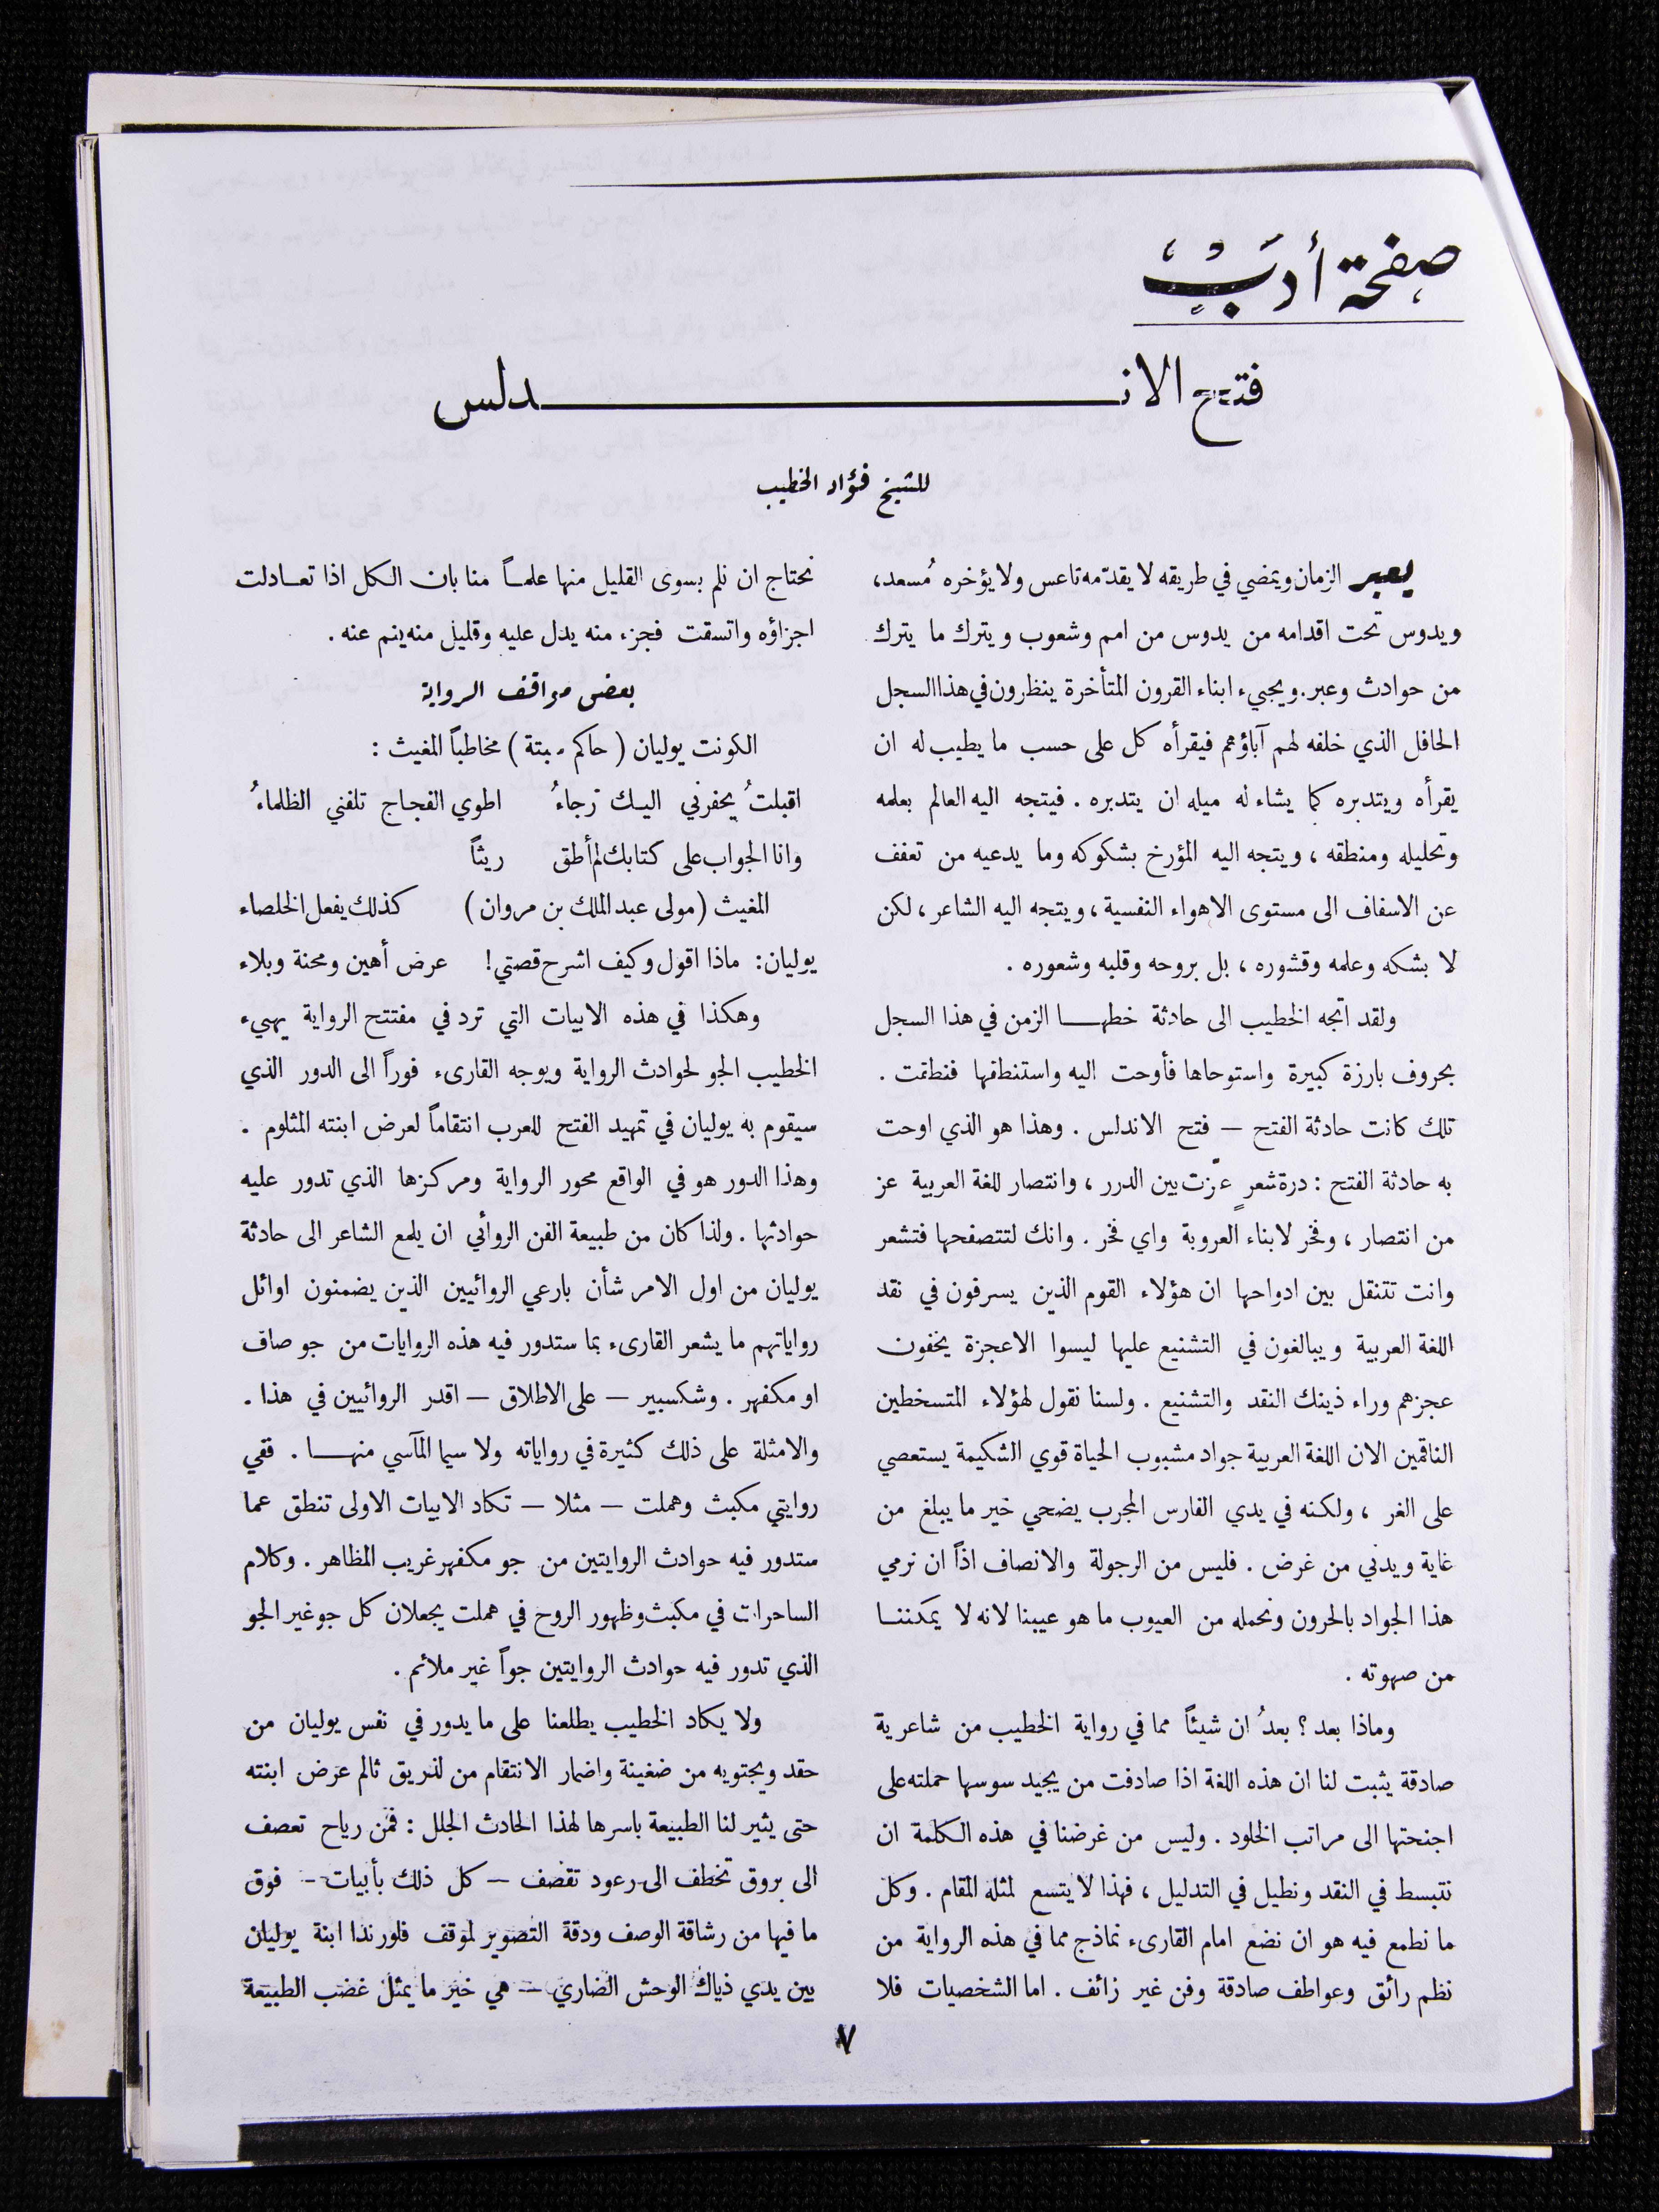 صفحة أدب
فتح الاندلس
للشيخ فؤاد الخطيب
يعبر الزمان ويمضي في طريقه لا يقدّمه تاعس ولا يؤخره مُسعد،
ويدوس تحت اقدامه من يدوس من امم وشعوب ويترك ما يترك
من حوادث وعبر. ويجيء ابناء القرون المتأخرة ينظرون في هذا السجل
الحافل الذي خلفه لهم آباؤهم فيقرأه كل على حسب ما يطيب له ان
يقرأه ويتدبره كما يشاء له ميله ان يتدبره . فيتجه اليه العالم بعلمه
وتحليله ومنطقه ، ويتجه اليه المؤرخ بشكوكه وما يدعيه من تعفف
عن الاسفاف الى مستوى الاهواء النفسية ، ويتجه اليه الشاعر ، لكن
لا بشكه وعلمه وقشوره ، بل بروحه وقلبه وشعوره .
ولقد اتجه الخطيب الى حادثة خطهـا الزمن في هذا السجل
بحروف بارزة كبيرة واستوحاها فأوحت اليه واستنطقها فنطقت .
تلك كانت حادثة الفتح – فتح الاندلس . وهذا هو الذي اوحت
به حادثة الفتح : درة شعرٍ عزّت بين الدرر ، وانتصار للغة العربية عز
من انتصار ، وفخر لابناء العروبة واي فخر . وانك لتتصفحها فتشعر
وانت تتنقل بين ادواحها ان هؤلاء القوم الذين يسرفون في نقد
اللغة العربية ويبالغون في التشنيع عليها ليسوا الاعجزة يخفون
عجزهم وراء ذينك النقد والتشنيع . ولسنا نقول لهؤلاء المتسخطين
الناقمين الان اللغة العربية جواد مشبوب الحياة قوي الشكيمة يستعصي
على الغر ، ولكنه في يدي الفارس المجرب يضحي خير ما يبلغ من
غاية ويدني من غرض . فليس من الرجولة والانصاف اذاً ان نرمي
هذا الجواد بالحرون ونحمله من العيوب ما هو عيبنا لانه لا يمكننـا
من صهوته .
وماذا بعد ؟ بعدُ ان شيئاً مما في رواية الخطيب من شاعرية
صادقة يثبت لنا ان هذه اللغة اذا صادفت من يجيد سوسها حملته على
اجنحتها الى مراتب الخلود . وليس من غرضنا في هذه الكلمة ان
نتبسط في النقد ونطيل في التدليل ، فهذا لا يتسع لمثله المقام . وكل
ما نطمع فيه هو ان نضع امام القارىء نماذج مما في هذه الرواية من
نظم رائق وعواطف صادقة وفن غير زائف . اما الشخصيات فلا
نحتاج ان نلم بسوى القليل منها علمـاً منا بان الكل اذا تعـادلت
اجزاؤه واتسقت فجزء منه يدل عليه وقليل منه ينم عنه .
بعض مواقف الرواية
الكونت يوليان ( حاكم سبتة ) مخاطباً المغيث :
اقبلتُ يحفزني اليـك رجاءُ اطوي الفجاج تلفني الظلماءُ
وانا الجواب على كتابك لم أطق ريثاً
المغيث ( مولى عبد الملك بن مروان ) كذلك يفعل الخلصاء
يوليان: ماذا اقول وكيف اشرح قصتي! عرض أهين ومحنة وبلاء
وهكذا في هذه الابيات التي ترد في مفتتح الرواية يهيء
الخطيب الجو لحوادث الرواية ويوجه القارىء فوراً الى الدور الذي
سيقوم به يوليان في تمهيد الفتح للعرب انتقاماً لعرض ابنته المثلوم .
وهذا الدور هو في الواقع محور الرواية ومركزها الذي تدور عليه
حوادثها . ولذا كان من طبيعة الفن الروائي ان يلمع الشاعر الى حادثة
يوليان من اول الامر شأن بارعي الروائيين الذين يضمنون اوائل
رواياتهم ما يشعر القارىء بما ستدور فيه هذه الروايات من جو صاف
او مكفهر . وشكسبير – على الاطلاق – اقدر الروائيين في هذا .
والامثلة على ذلك كثيرة في رواياته ولا سيما المآسي منهـا . ففي
روايتي مكبث وهملت – مثلا – تكاد الابيات الاولى تنطق عما
ستدور فيه حوادث الروايتين من جو مكفهر غريب المظاهر . وكلام
الساحرات في مكبث وظهور الروح في هملت يجعلان كل جو غير الجو
الذي تدور فيه حوادث الروايتين جواً غير ملائم .
ولا يكاد الخطيب يطلعنا على ما يدور في نفس يوليان من
حقد ويجتويه من ضغينة واضمار الانتقام من لذريق ثالم عرض ابنته
حتى يثير لنا الطبيعة باسرها لهذا الحادث الجلل : فمن رياح تعصف
الى بروق تخطف الى رعود تقصف – كل ذلك بأبيات – فوق
ما فيها من رشاقة الوصف ودقة التصوير لموقف فلورندا ابنة يوليان
بين يدي ذياك الوحش الضاري – هي خير ما يمثل غضب الطبيعة
٧